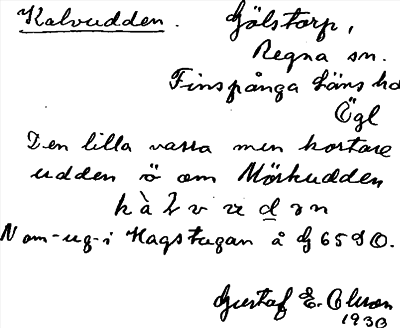 Kalvudden. Gölstorp,
Regna sn.
Finspånga läns hd
Ögl
Den lilla vassa men kortare
udden ö om Mörkudden
Nom-ug-i Hagstugan å G 65 SO.
Gustaf E. Olsson
1930